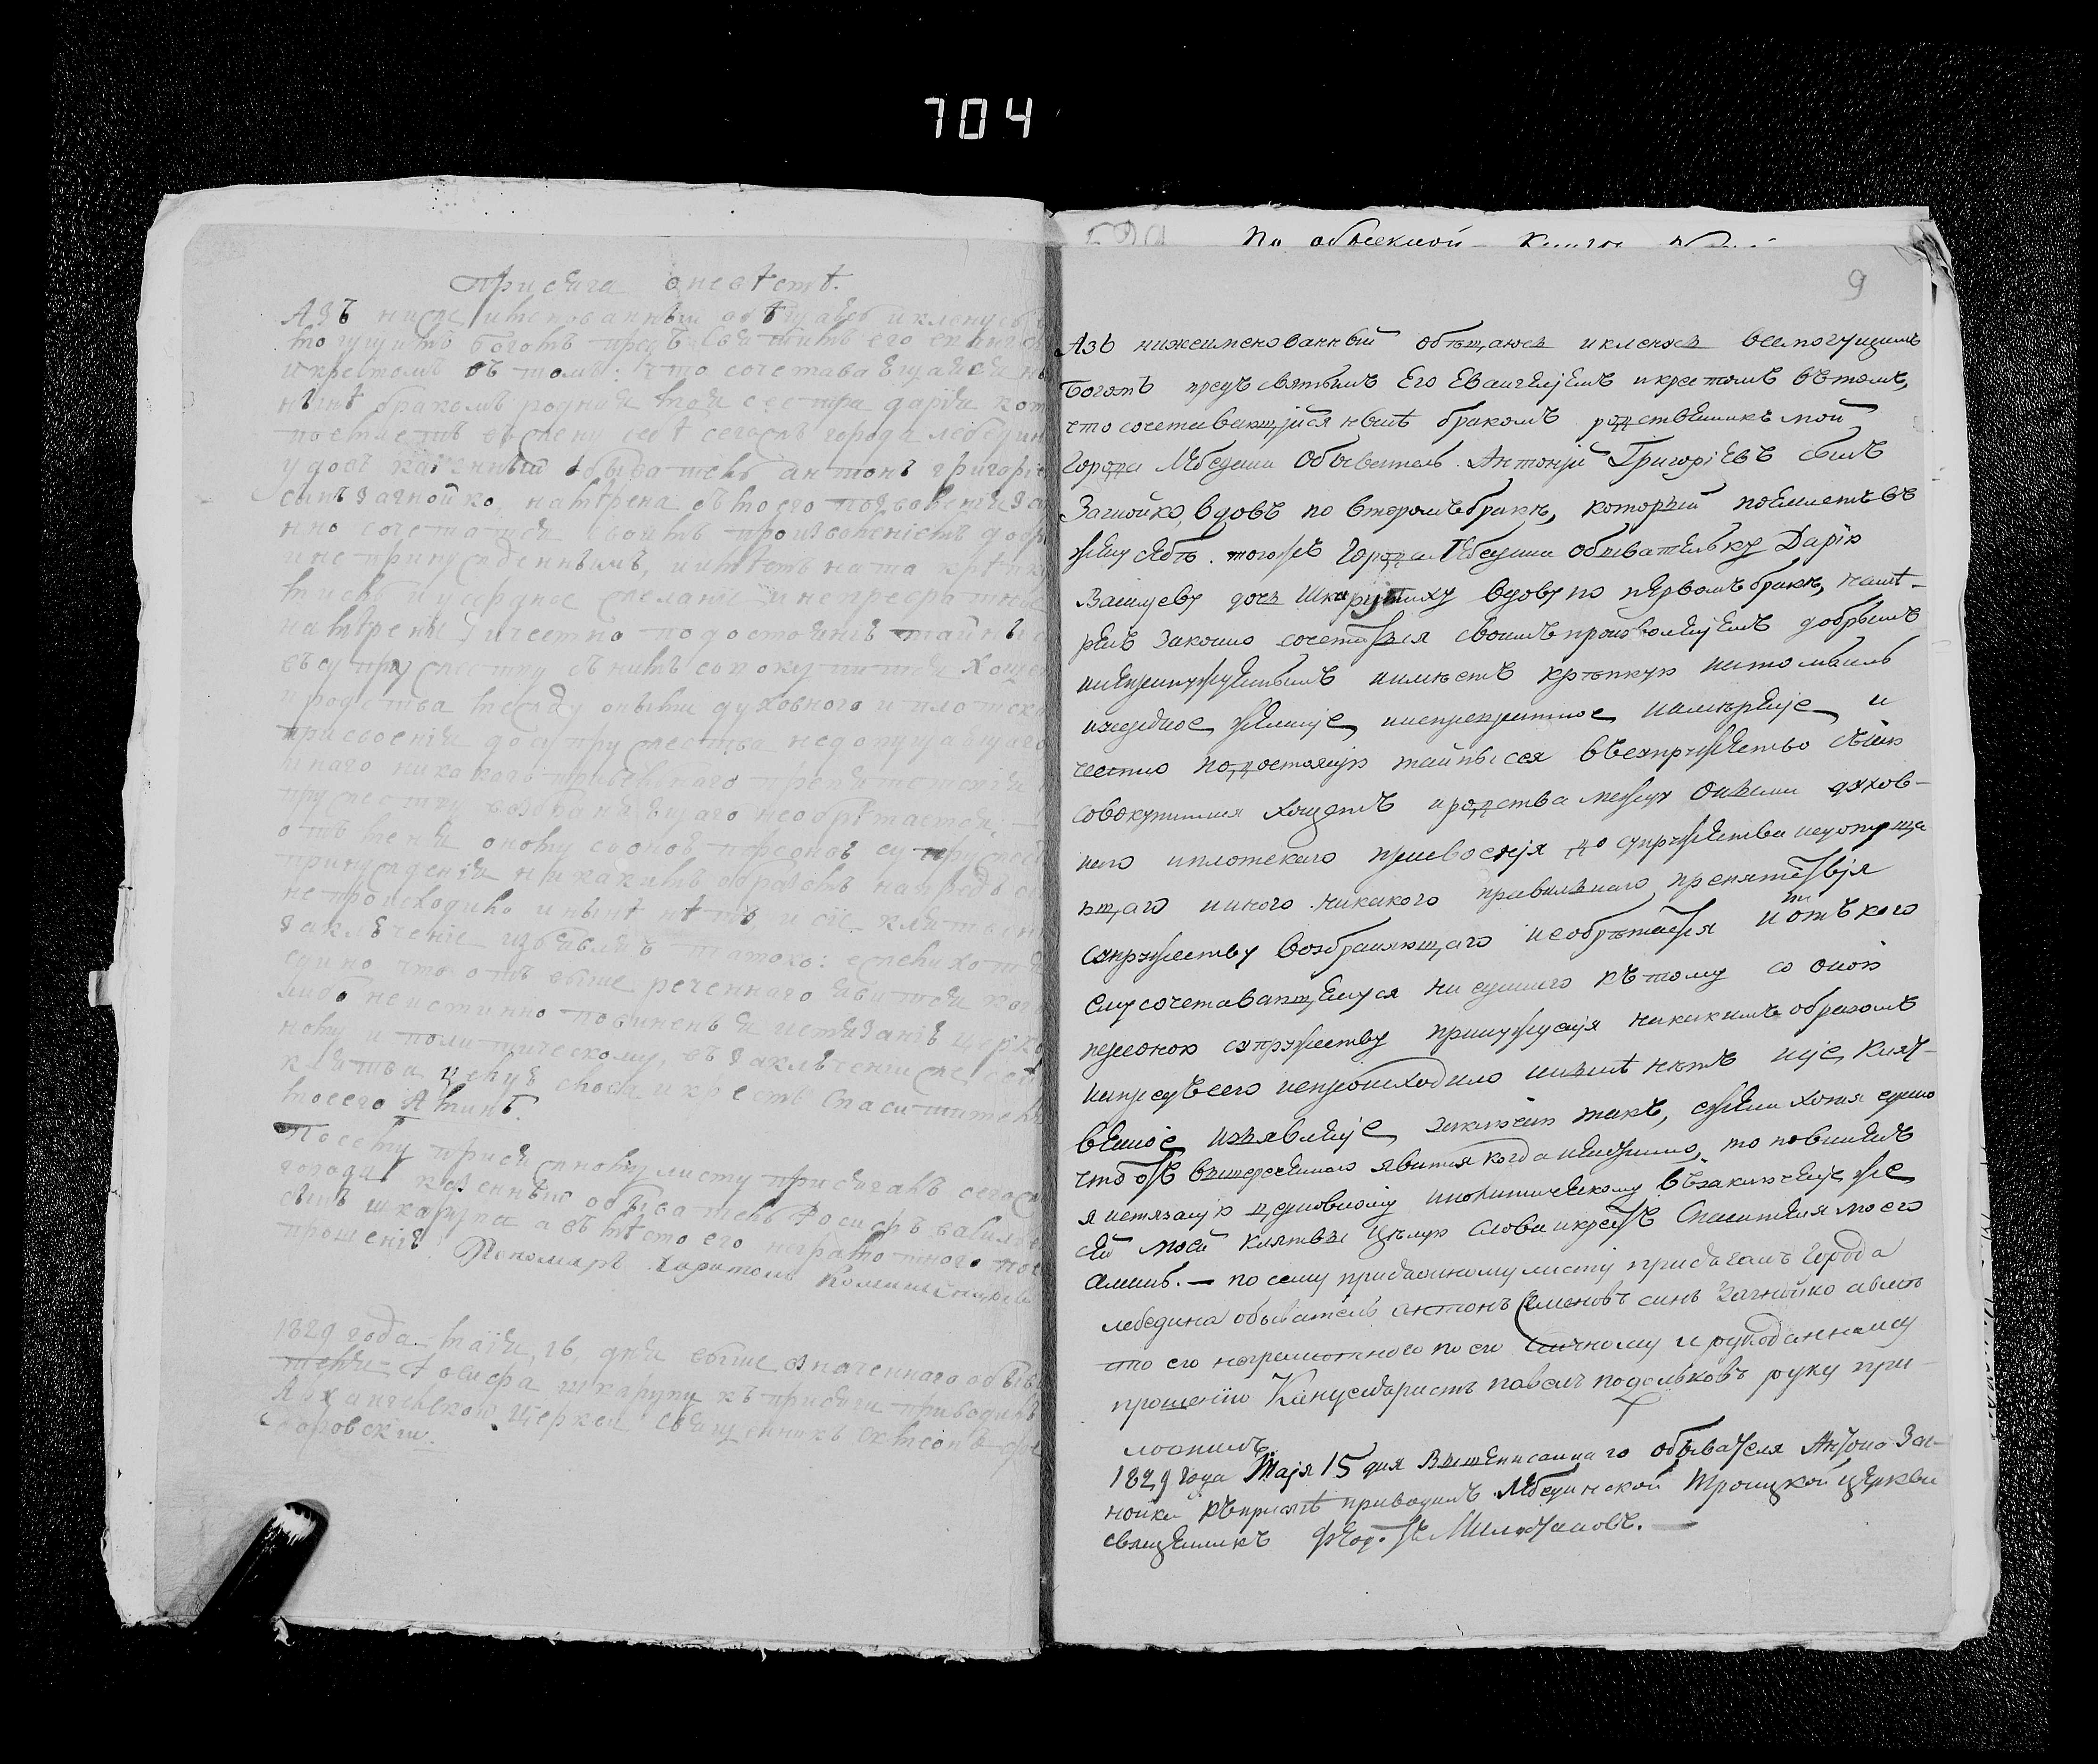 704
Присяга о невѣстѣ.
Азъ ниже именованный обѣщаюсь и кленусь
могущимъ Богомъ предъ Святымъ его евангел
и крестомъ въ томъ: что сочетавающаяся
нынѣ бракомъ родная моя сестра дарїя
поемлетъ въ жену себѣ сегожъ города лебедин
удовъ казенный обыватель антонъ григорїе
синъ загнойко, намѣрена съ моего позволенїя за
нно сочетатся своимъ произволенїемъ добр
и не принужденнымъ, и имѣетъ на то крѣпку
мисль и усердное желанїе и непревратное
намѣренїе и честно по достоинъ тайны
въ супружество съ нимъ совокупится хощет
и родства между оными духовного и плотска
присвоенїя до супружества недопущающаго
инаго никакого правилнаго препятствїя
пружеству возбраняющаго необрѣтается,
отъ меня оному съ оною персоною супружест
принужденїя никакимъ образомъ напредь с
не происходило и нынѣ нѣтъ и сїе клятвен
заключенїе изъявляю такого: ежели хотя
едино что отъ выше реченного явится ког
либо неистинно повиненъ я истязанїю церко
ному и политическому, въ заключенїи же сей
клятвы целую слова и крестъ Спасителя
моего Аминъ.
По сему присяжному листу присягалъ сегож
города казенный обыватель Фосифъ васил
сынъ шкарупа а вмѣсто его неграмотного по
прошенїю Пономарь Харитонъ
1829 года маїя 16 дня выше означенного обыв
теля Фосифа шкарупу къ присяги приводилъ
Архангелской Церкви священникъ Симеонъ
По обыскной Книге
9
Азъ нижеименованный обѣщаюсь и кленюсь всемогущимъ
Богомъ предъ святымъ Его Евангелїемъ и крестомъ въ томъ,
что сочетавающїйся нынѣ бракомъ родственникъ мой
города Лебедина Обыватель Антонїй Григорїевъ сынъ
Загнойко, вдовъ по второмъ бракѣ, который поемлетъ въ
жену себѣ того жъ города Лебедина обывательку Дарїю
Василеву дочь Шкарупиху вдову по первомъ бракѣ, намѣ-
ренъ законно сочетаться своимъ произволенїемъ добрымъ
и непринужденнымъ и имѣетъ крѣпкую на то мысль
и усердное желанїе, и непревратное намѣренїе, и
честно по достоянїю тайны сея въ супружество съ нею
совокупится хощетъ и родства между оными духов-
наго и плотскаго присвоенїя до супружества недопуща
ющаго и иного никакого правильнаго препятствїя
супружеству возбраняющаго необрѣтается и отъ кого
ему сочетавающемуся ни единого къ тому со оною
персоною супружеству принужденїя никакимъ образомъ
напредь сего непроисходило и нынѣ нѣтъ и сїе, клят-
венное изъявленїе, заключаю такъ, ежели хотя едино
что отъ вышереченнаго явится когда неистинно, то повиненъ
я истязанїю церковному и политическому въ заключенїе же
сей моей клятвы цѣлую слова и крестъ Спасителя моего
аминь. — По сему присяжному листу присягалъ города
лебедина обыватель антонъ Семеновъ синъ Загнойко а вмѣ
сто его неграмотного по его личному и рукоданному
прошенїю Канцеляристъ павелъ подольковъ руку при-
ложилъ.
1829 года Маїя 15 дня Вышеписаннаго обывателя Антона Заг-
нойка къ присягѣ приводилъ Лебединской Троицкой церкви
священникъ